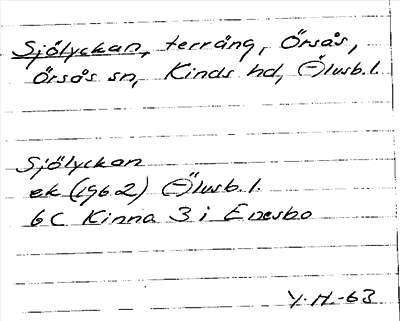 Sjölyckan, terräng, Örsås,
Örsås sn, Kinds hd, Älvsb. l.
Sjölyckan
ek (1962) Älvsb. l.
6C Kinna 3 i Enesbo
Y. H. -63